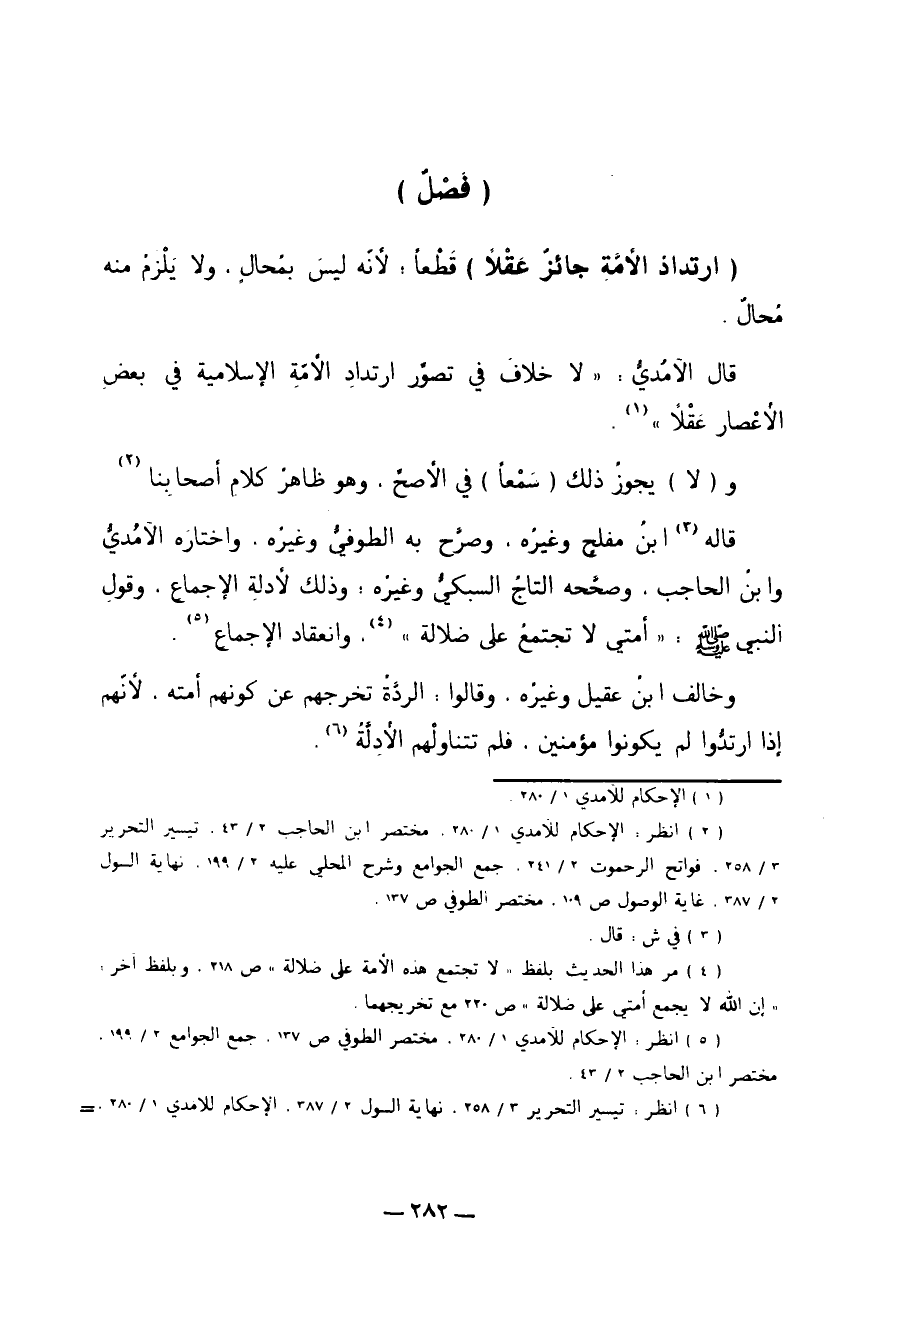 ( فَصْلٌ )
( ارتدادُ الأمَّةِ جائزٌ عَقْلاً ) قَطْعاً ؛ لأنَّه ليسَ بمُحالٍ ، ولا يَلْزَمُ منه
مُحالٌ .
قال الآمُديُّ : « لا خلافَ في تصوُّر ارتدادِ الأمَّةِ الإسلامية في بعضِ
الأعْصار عَقْلاً »(١) .
و ( لا ) يجوزُ ذلك ( سَمْعاً ) في الأصحِّ ، وهو ظاهرُ كلامِ أصحابِنا (٢)
قاله (٣) ابنُ مفلحٍ وغيرُه ، وصرَّح به الطوفيُّ وغيرُه ، واختارَه الآمُديُّ
وابنُ الحاجب ، وصحَّحه التاجُ السبكيُّ وغيرُه ؛ وذلك لأدلةِ الإجماع ، وقولِ
النبي ﷺ : « أمتي لا تجتمعُ على ضلالة » (٤)، وانعقاد الإجماع (٥) .
وخالف ابنُ عقيل وغيرُه ، وقالوا : الردَّةُ تخرجهم عن كونهم أمته ، لأنَّهم
إذا ارتدُّوا لم يكونوا مؤمنين ، فلم تتناولْهم الأدِلَّةُ (٦) .
( ١ ) الإحكام للآمدي ١ / ٢٨٠ .
( ٢ ) انظر : الإحكام للآمدي ١ / ٢٨٠ ، مختصر ابن الحاجب ٢ / ٤٣ ، تيسير التحرير
٣ / ٢٥٨ ، فواتح الرحموت ٢ / ٢٤١ ، جمع الجوامع وشرح المحلي عليه ٢ / ١٩٩ ، نهاية السول
٢ / ٣٨٧ ، غاية الوصول ص ١٠٩ ، مختصر الطوفي ص ١٣٧ .
( ٣ ) في ش : قال .
( ٤ ) مر هذا الحديث بلفظ « لا تجتمع هذه الأمة على ضلالة » ص ٢١٨ ، وبلفظ آخر :
« إن الله لا يجمع أمتي على ضلالة » ص ٢٢٠ مع تخريجهما .
( ٥ ) انظر : الإحكام للآمدي ١ / ٢٨٠ ، مختصر الطوفي ص ١٣٧ ، جمع الجوامع ٢ / ١٩٩ ،
مختصر ابن الحاجب ٢ / ٤٣ .
( ٦ ) انظر : تيسير التحرير ٣ / ٢٥٨ ، نهاية السول ٢ / ٣٨٧ ، الإحكام للآمدي ١ / ٢٨٠ ، =
— ٢٨٢ —